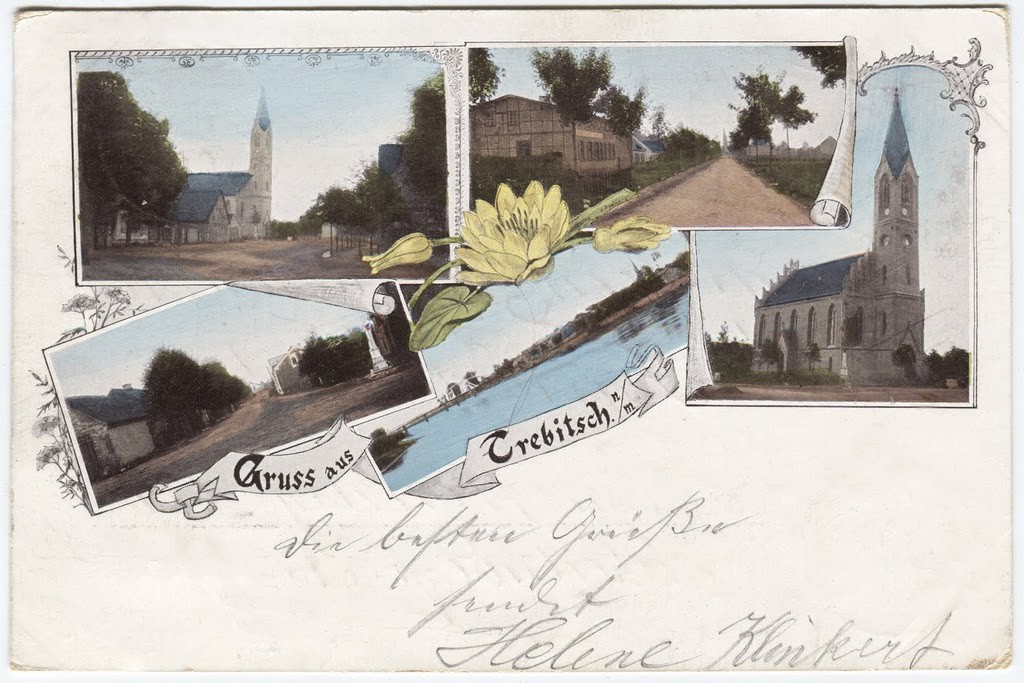 Gruss aus
Trebitsch. n/m
Die besten Grüße
sendet
Helene Klinkert